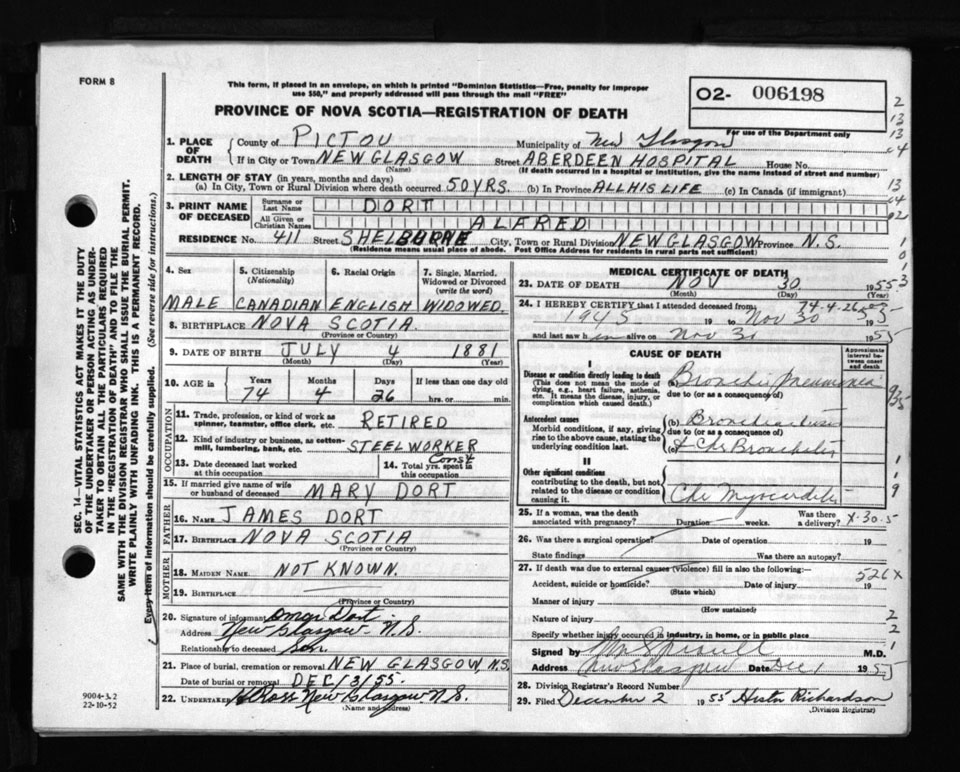 FORM 8
This form, if placed in an envelope, on which is printed "Dominion Statistics—Free, penalty for improper
use $50," and properly addressed will pass through the mail "FREE"
PROVINCE OF NOVA SCOTIA—REGISTRATION OF DEATH
O2- 006198
For use of the Department only
SEC. 14—VITAL STATISTICS ACT MAKES IT THE DUTY
OF THE UNDERTAKER OR PERSON ACTING AS UNDER-
TAKER TO OBTAIN ALL THE PARTICULARS REQUIRED
IN THE "REGISTRATION OF DEATH" AND TO FILE THE
SAME WITH THE DIVISION REGISTRAR WHO SHALL ISSUE THE BURIAL PERMIT.
WRITE PLAINLY WITH UNFADING INK. THIS IS A PERMANENT RECORD.
Every item of information should be carefully supplied. (See reverse side for instructions.)
1. PLACE OF DEATH
County of PICTOU Municipality of New Glasgow
If in City or Town NEW GLASGOW Street ABERDEEN HOSPITAL House No.
(Name) (If death occurred in a hospital or institution, give the name instead of street and number)
2. LENGTH OF STAY (in years, months and days)
(a) In City, Town or Rural Division where death occurred 50 YRS. (b) In Province ALL HIS LIFE (c) In Canada (if immigrant)
3. PRINT NAME OF DECEASED
Surname or Last Name DORT
All Given or Christian Names ALFRED
RESIDENCE No. 411 Street SHELBURNE City, Town or Rural Division NEW GLASGOW Province N.S.
(Residence means usual place of abode. Post Office Address for residents in rural parts not sufficient)
4. Sex 5. Citizenship (Nationality) 6. Racial Origin 7. Single, Married, Widowed or Divorced (write the word)
MALE CANADIAN ENGLISH WIDOWED.
8. BIRTHPLACE NOVA SCOTIA.
(Province or Country)
9. DATE OF BIRTH JULY 4 1881
(Month) (Day) (Year)
10. AGE in Years Months Days If less than one day old
74 4 26 hrs. or min.
OCCUPATION
11. Trade, profession, or kind of work as
spinner, teamster, office clerk, etc. RETIRED
12. Kind of industry or business, as cotton-
mill, lumbering, bank, etc. STEELWORKER
13. Date deceased last worked
at this occupation
14. Total yrs. spent in
this occupation Const
15. If married give name of wife
or husband of deceased MARY DORT
FATHER
16. NAME JAMES DORT
17. BIRTHPLACE NOVA SCOTIA
(Province or Country)
MOTHER
18. MAIDEN NAME NOT KNOWN.
19. BIRTHPLACE
(Province or Country)
20. Signature of informant Omar Dort
Address New Glasgow N.S.
Relationship to deceased son
21. Place of burial, cremation or removal NEW GLASGOW, N.S.
Date of burial or removal DEC/3/55.
22. UNDERTAKER Ross New Glasgow N.S.
(Name and address)
9004-3-2
22-10-52
MEDICAL CERTIFICATE OF DEATH
23. DATE OF DEATH NOV 30 1955
(Month) (Day) (Year)
24. I HEREBY CERTIFY that I attended deceased from 74-4-26
1945 19 to Nov 30 1955
and last saw him alive on Nov 30 1955
CAUSE OF DEATH
Approximate interval between onset and death
I
Disease or condition directly leading to death
(This does not mean the mode of dying, e.g., heart failure, asthenia, etc. It means the disease, injury, or complication which caused death.)
(a) Broncho pneumonia
due to (or as a consequence of)
Antecedent causes
Morbid conditions, if any, giving rise to the above cause, stating the underlying condition last.
(b) Bronchiectasis
due to (or as a consequence of)
(c) & Chr Bronchitis
II
Other significant conditions
contributing to the death, but not related to the disease or condition causing it.
Chr Myocarditis
25. If a woman, was the death
associated with pregnancy? Duration weeks. Was there a delivery? X-30-5
26. Was there a surgical operation? Date of operation 19
State findings Was there an autopsy?
27. If death was due to external causes (violence) fill in also the following: 526X
Accident, suicide or homicide? Date of injury 19
(State which)
Manner of injury
(How sustained)
Nature of injury
Specify whether injury occurred in industry, in home, or in public place
Signed by M.D.
Address New Glasgow Date Dec 1 1955
28. Division Registrar's Record Number
29. Filed December 2 1955 Richardson
(Division Registrar)